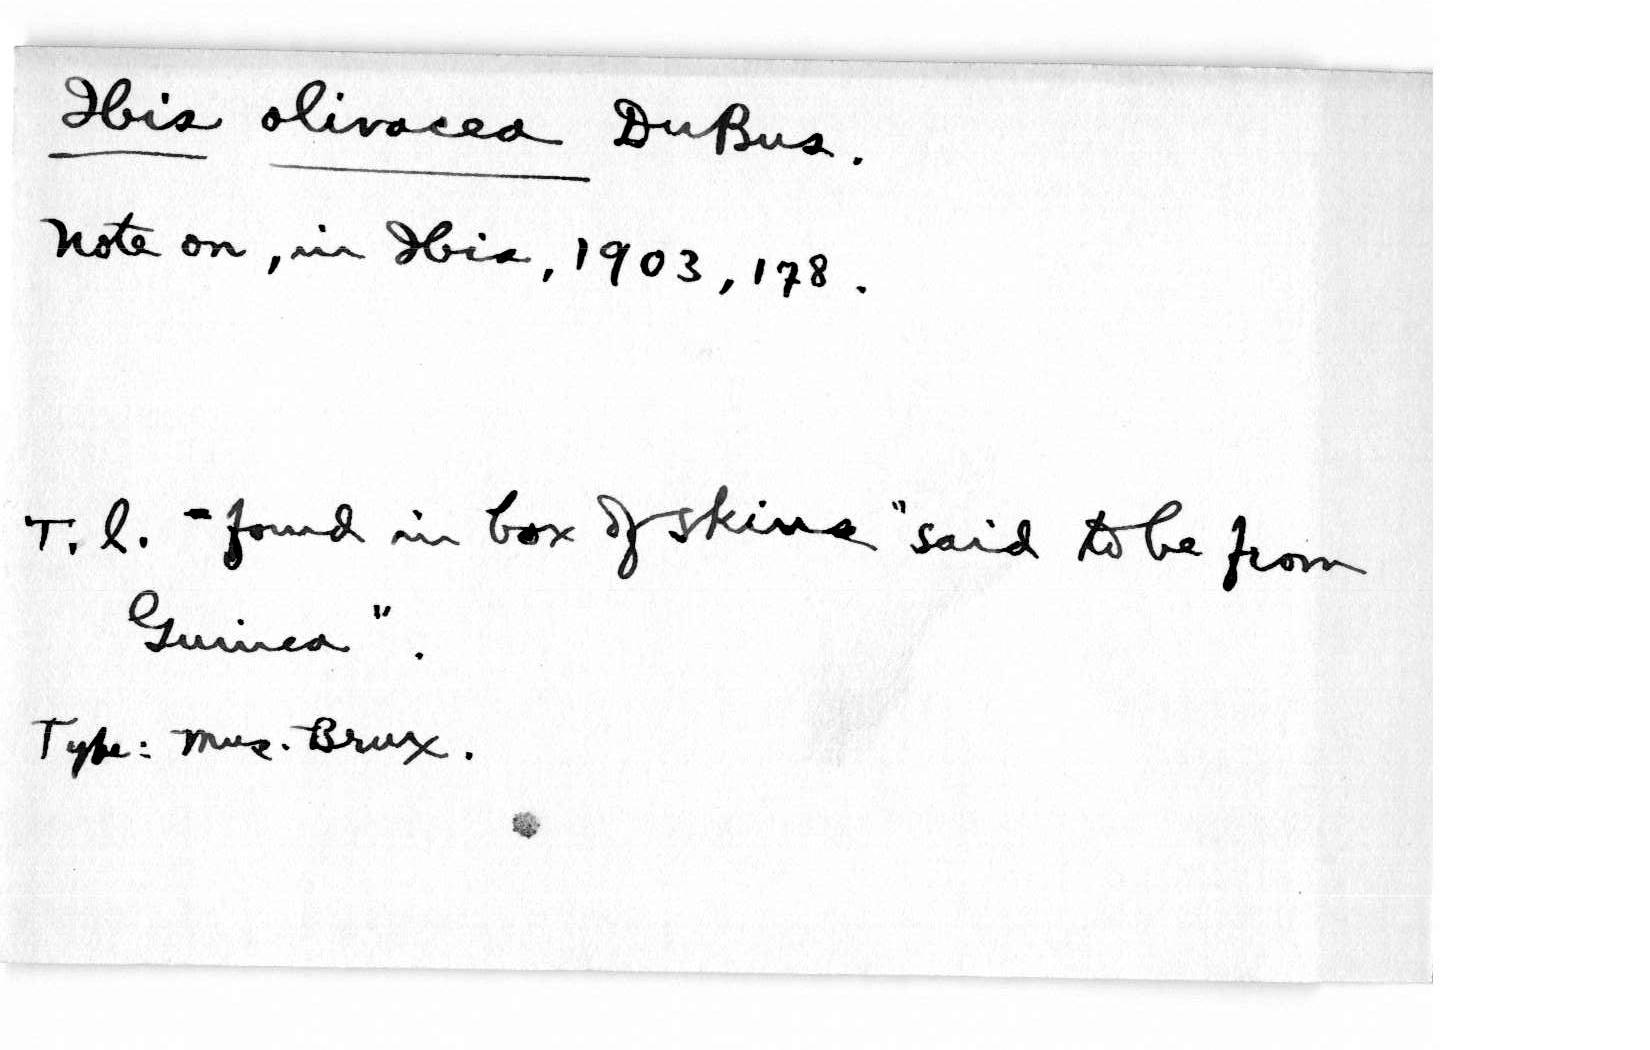 Ibis olivacea DuBus.
Note on, in Ibis, 1903, 178.
T. l. - found in box of skins "said to be from
Guinea".
Type: Mus. Brux.